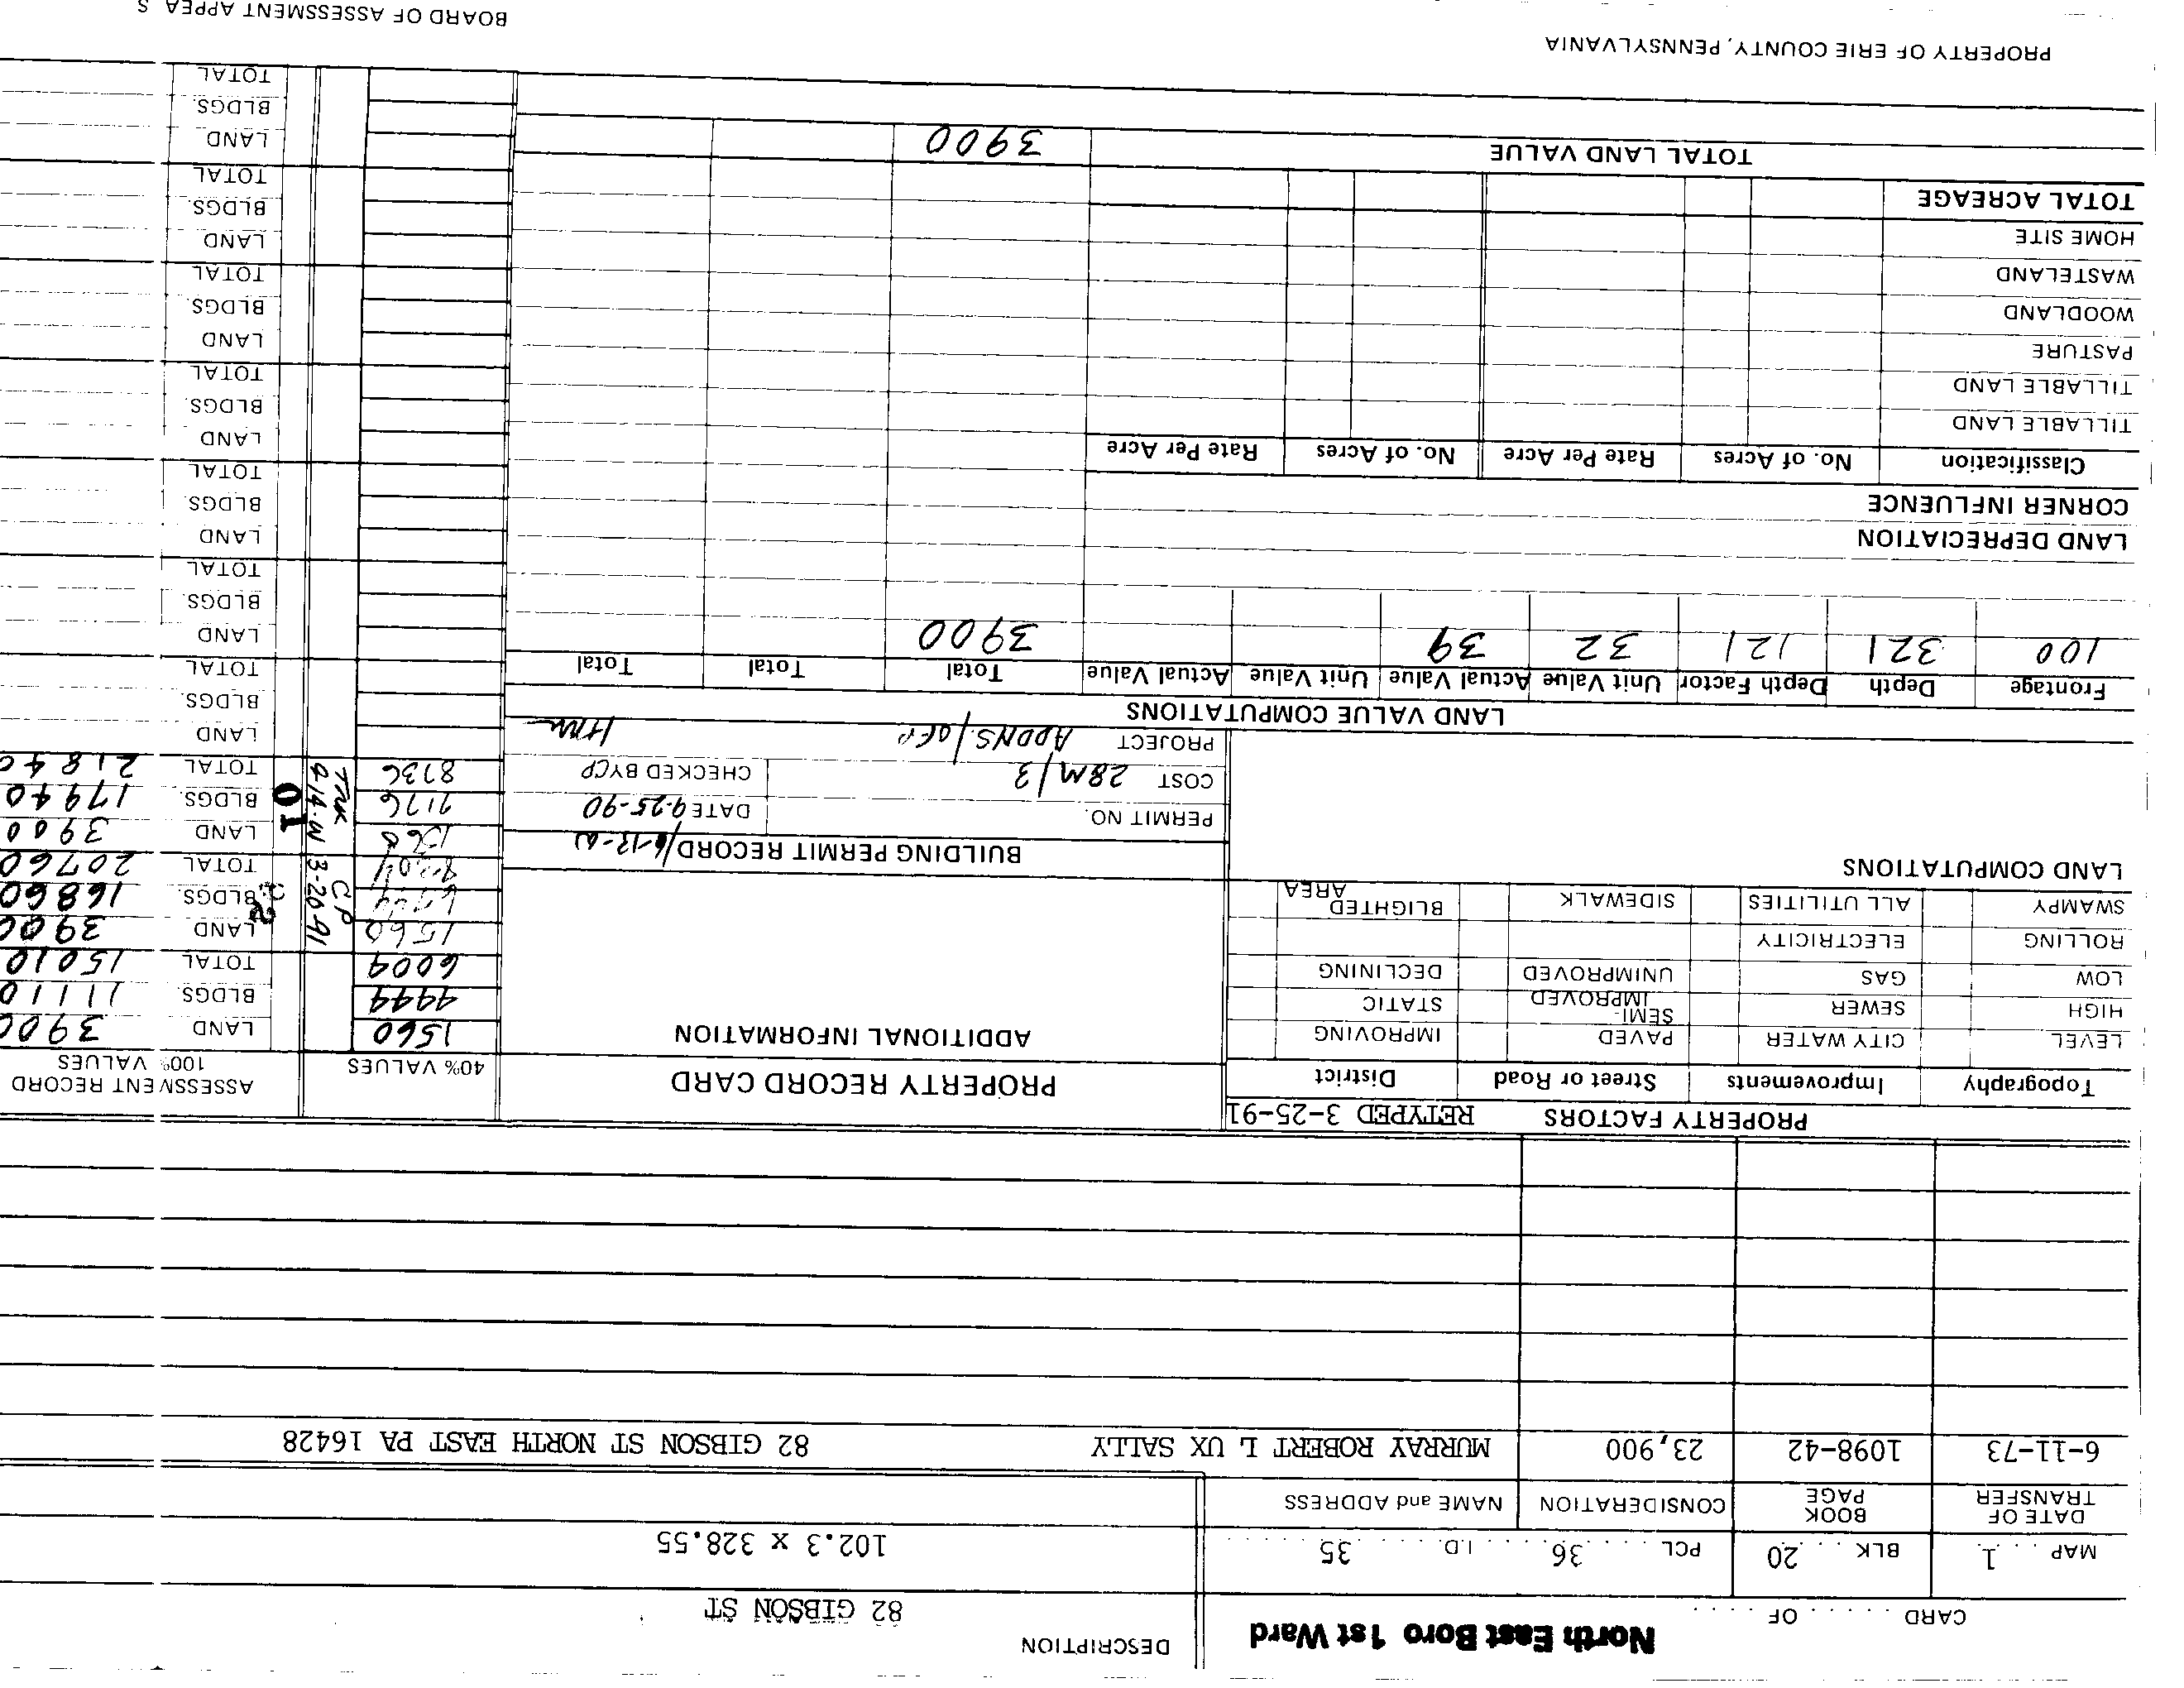 North East Boro 1st Ward
CARD ...... OF .....
DESCRIPTION
82 GIBSON ST
MAP ... 1 BLK ... 20 PCL ..... 36 ..... I.D. ..... 35
102.3 x 328.55
DATE OF TRANSFER BOOK PAGE CONSIDERATION NAME and ADDRESS
6-11-73 1098-42 23,900 MURRAY ROBERT L UX SALLY 82 GIBSON ST NORTH EAST PA 16428
PROPERTY FACTORS RETYPED 3-25-91
Topography Improvements Street or Road District
LEVEL CITY WATER PAVED IMPROVING
HIGH SEWER SEMI-IMPROVED STATIC
LOW GAS UNIMPROVED DECLINING
ROLLING ELECTRICITY
SWAMPY ALL UTILITIES SIDEWALK BLIGHTED AREA
LAND COMPUTATIONS
PROPERTY RECORD CARD
ADDITIONAL INFORMATION
BUILDING PERMIT RECORD
PERMIT NO. DATE 9-25-90
COST 28M/3 CHECKED BY CP
PROJECT ADDNS/OFP
40% VALUES
ASSESSMENT RECORD
100% VALUES
1560 LAND 3900
4444 BLDGS. 11110
6004 TOTAL 15010
1560 LAND 3900
BLDGS. 16860
TOTAL 20760
C.P 3-20-91
1560 LAND 3900
7176 BLDGS. 17940
8736 TOTAL 21840
01
LAND
BLDGS.
TOTAL
LAND
BLDGS.
TOTAL
LAND
BLDGS.
TOTAL
LAND
BLDGS.
TOTAL
LAND
BLDGS.
TOTAL
LAND
BLDGS.
TOTAL
LAND
BLDGS.
TOTAL
LAND VALUE COMPUTATIONS
Frontage Depth Depth Factor Unit Value Actual Value Unit Value Actual Value Total Total Total
100 321 121 32 39 3900
LAND DEPRECIATION
CORNER INFLUENCE
Classification No. of Acres Rate Per Acre No. of Acres Rate Per Acre
TILLABLE LAND
TILLABLE LAND
PASTURE
WOODLAND
WASTELAND
HOME SITE
TOTAL ACREAGE
TOTAL LAND VALUE 3900
PROPERTY OF ERIE COUNTY, PENNSYLVANIA
BOARD OF ASSESSMENT APPEA S